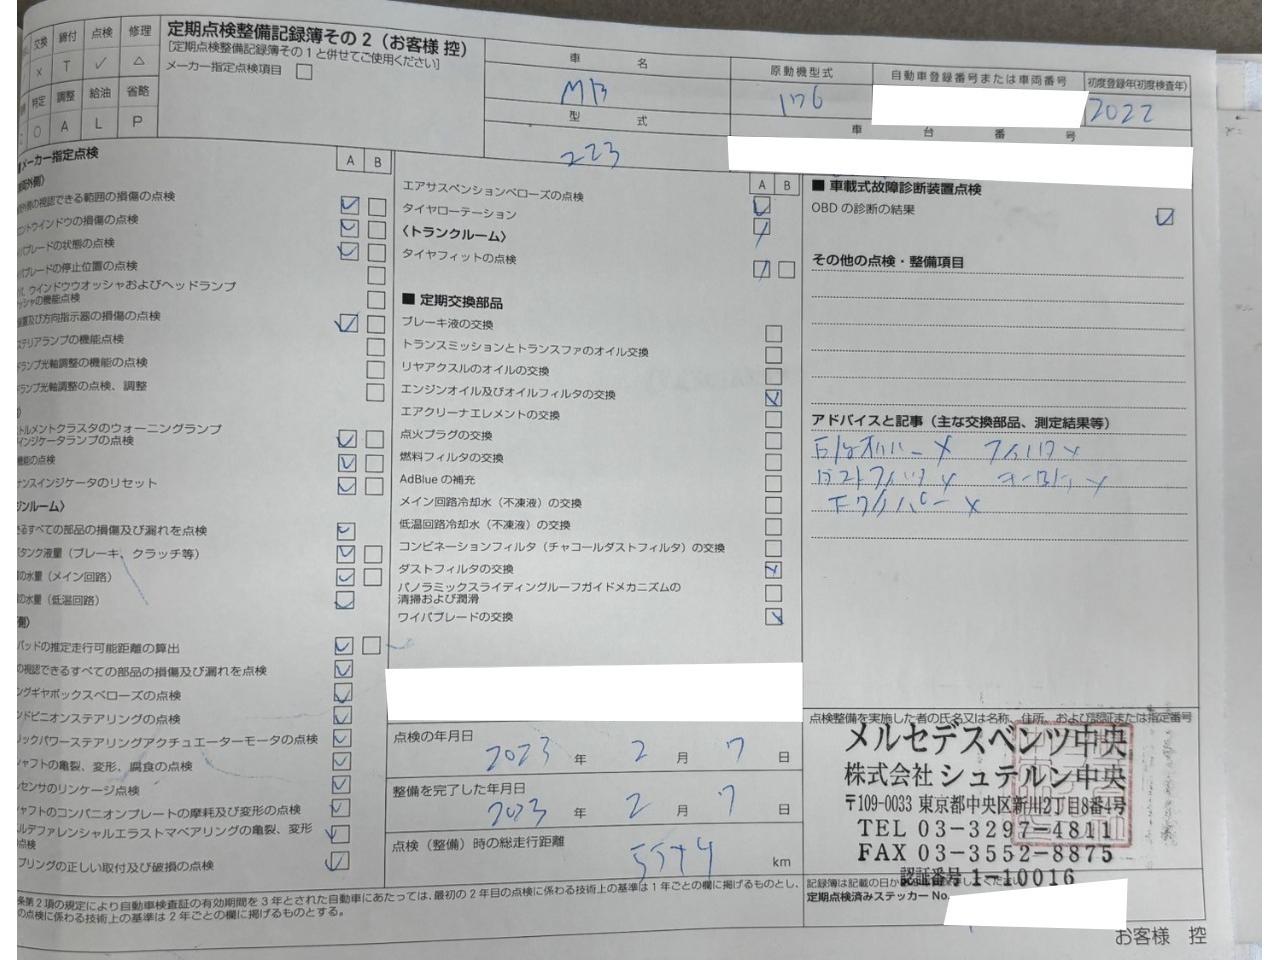 交換 締付 点検 修理
× T ✓ △
特定 調整 給油 省略
○ A L P
定期点検整備記録簿その2（お客様 控）
[定期点検整備記録簿その1と併せてご使用ください]
メーカー指定点検項目
車 名
MB
原動機型式
176
自動車登録番号または車両番号
初度登録年(初度検査年)
2022
型 式
223
車 台 番 号
メーカー指定点検
A B
視認できる範囲の損傷の点検
ウインドウの損傷の点検
ブレードの状態の点検
ブレードの停止位置の点検
ウインドウウオッシャおよびヘッドランプ
の機能点検
及び方向指示器の損傷の点検
テリアランプの機能点検
ランプ光軸調整の機能の点検
ランプ光軸調整の点検、調整
トルメントクラスタのウォーニングランプ
インジケータランプの点検
機能の点検
ナンスインジケータのリセット
ジンルーム〉
るすべての部品の損傷及び漏れを点検
タンク液量（ブレーキ、クラッチ等）
の水量（メイン回路）
の水量（低温回路）
側〉
パッドの推定走行可能距離の算出
の視認できるすべての部品の損傷及び漏れを点検
ングギヤボックスベローズの点検
ンドピニオンステアリングの点検
リックパワーステアリングアクチュエーターモータの点検
シャフトの亀裂、変形、腐食の点検
センサのリンケージ点検
シャフトのコンパニオンプレートの摩耗及び変形の点検
ルデファレンシャルエラストマベアリングの亀裂、変形
の点検
プリングの正しい取付及び破損の点検
A B
エアサスペンションベローズの点検
タイヤローテーション
〈トランクルーム〉
タイヤフィットの点検
■ 定期交換部品
ブレーキ液の交換
トランスミッションとトランスファのオイル交換
リヤアクスルのオイルの交換
エンジンオイル及びオイルフィルタの交換
エアクリーナエレメントの交換
点火プラグの交換
燃料フィルタの交換
AdBlueの補充
メイン回路冷却水（不凍液）の交換
低温回路冷却水（不凍液）の交換
コンビネーションフィルタ（チャコールダストフィルタ）の交換
ダストフィルタの交換
パノラミックスライディングルーフガイドメカニズムの
清掃および潤滑
ワイパブレードの交換
点検の年月日
2023 年 2 月 7 日
整備を完了した年月日
2023 年 2 月 7 日
点検（整備）時の総走行距離
km
■ 車載式故障診断装置点検
OBDの診断の結果
その他の点検・整備項目
アドバイスと記事（主な交換部品、測定結果等）
点検整備を実施した者の氏名又は名称、住所、および認証または指定番号
メルセデスベンツ中央
株式会社 シュテルン中央
〒109-0033 東京都中央区新川2丁目8番4号
TEL 03-3297-4811
FAX 03-3552-8875
認証番号 1-10016
記録簿は記載の日か
定期点検済みステッカー No.
条第2項の規定により自動車検査証の有効期間を3年とされた自動車にあたっては、最初の2年目の点検に係わる技術上の基準は1年ごとの欄に掲げるものとし、
の点検に係わる技術上の基準は2年ごとの欄に掲げるものとする。
お客様 控